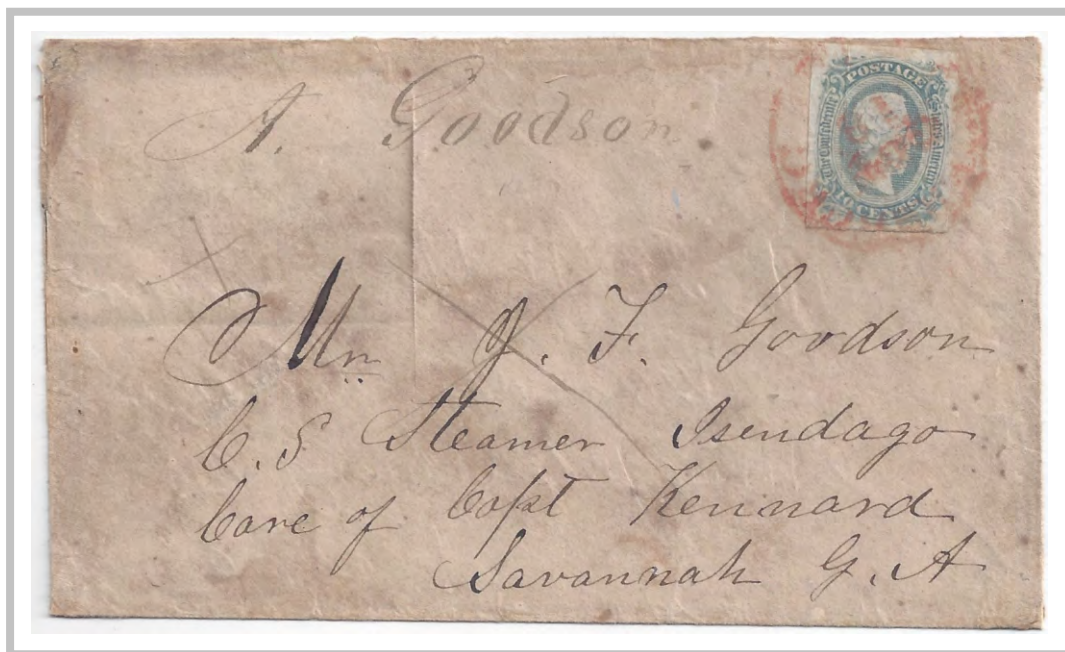 A. Goodson.
POSTAGE
The Confederate States America
10 CENTS
Mr. J. F. Goodson
C. S Steamer Isendago
Care of Capt Kennard
Savannah G. A